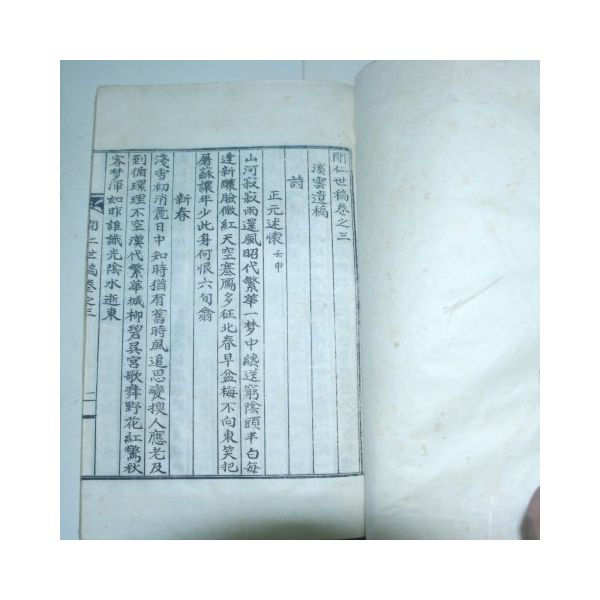 仁世稿卷之三
溪雲遺稿
詩
正元述懷 壬申
山河寂寂雨還風昭代繁華一梦中纔送窮陰頭半白每
逢新釀臉微紅天空塞鴈多征北春早盆梅不向東笑把
屠蘇讓年少此身何恨六旬翁
新春
淺雪初消麗日中時猶有舊時風追思變換人應老及
到循環理不空漢代繁華城柳碧吳宮歌舞野花紅驚秋
客梦渾如昨誰識光陰水逝東
仁世稿卷之三 一